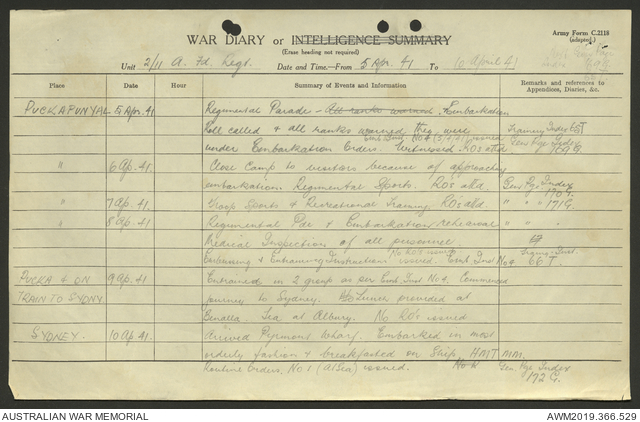 WAR DIARY or INTELLIGENCE SUMMARY
(Erase heading not required)
Army Form C.2118
(adapted.)
Unit 2/11 A. Fd. Regt. Date and Time—From 5 Apr. 41 To 10 April 41
Place Date Hour Summary of Events and Information Remarks and references to Appendices, Diaries, &c.
PUCKAPUNYAL 5 Apr. 41 Regimental Parade - All ranks warned. Embarkation
Roll called & all ranks warned they were Training Index
under Embarkation Orders. Witnessed. ROs atta Gen Rge Index 169 G.
" 6 Ap. 41 Close Camp to visitors because of approaching
embarkation Regimental Sports. ROs atta. Gen Rge Index 170 G.
" 7 Ap. 41 Troop Sports & Recreational Training. ROs atta " " " 171 G.
" 8 Ap. 41 Regimental Pde & Embarkation rehearsal
Medical Inspection of all personnel. No ROs issued
& Entraining Instructions issued. Emb. Inst No 4 66 T.
PUCKA & ON 9 Ap. 41 Entrained in 2 group as per Emb. Inst No 4. Commenced
TRAIN TO SYDNY. journey to Sydney. Lunch provided at
Benalla. Tea at Albury. No ROs issued
SYDNEY. 10 Ap. 41 Arrived Pyrmont Wharf. Embarked in most
orderly fashion & breakfasted on Ship, HMT MM.
Routine Orders, No 1 (At Sea) issued. Gen Rge Index 172 G.
AUSTRALIAN WAR MEMORIAL
AWM2019.366.529